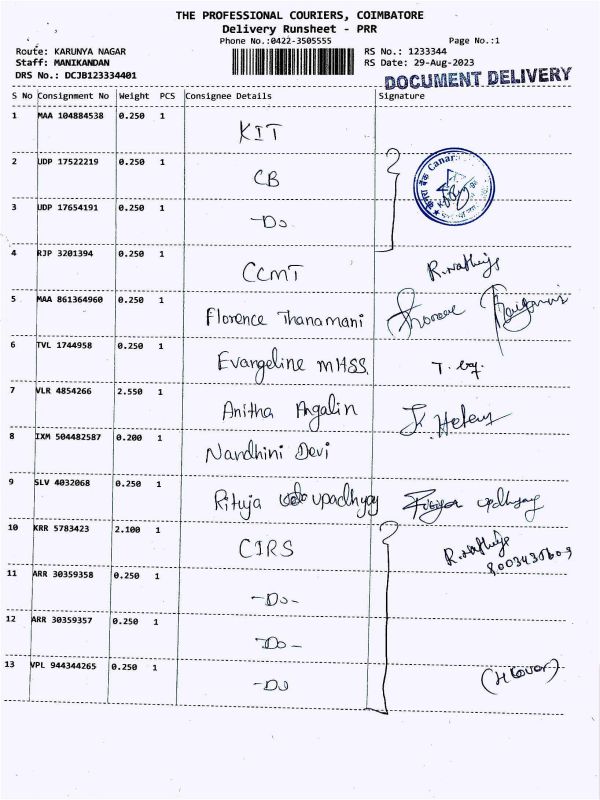 THE PROFESSIONAL COURIERS, COIMBATORE
Delivery Runsheet - PRR
Phone No.:0422-3505555 Page No.:1
Route: KARUNYA NAGAR RS No.: 1233344
Staff: MANIKANDAN RS Date: 29-Aug-2023
DRS No.: DCJB123334401
DOCUMENT DELIVERY
S No Consignment No Weight PCS Consignee Details Signature
1 MAA 104884538 0.250 1 KIT
2 UDP 17522219 0.250 1 CB
3 UDP 17654191 0.250 1 -Do
4 RJP 3201394 0.250 1 CCMT
5 MAA 861364960 0.250 1 Florence Thanamani
6 TVL 1744958 0.250 1 Evangeline MHSS.
7 VLR 4854266 2.550 1 Anitha Angalin
8 IXM 504482587 0.200 1 Nandhini Devi
9 SLV 4032068 0.250 1 Rituja upadhyay
10 KRR 5783423 2.100 1 CIRS
11 ARR 30359358 0.250 1 -Do-
12 ARR 30359357 0.250 1 -Do-
13 VPL 944344265 0.250 1 -Do